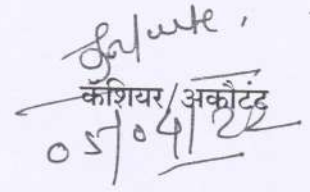 कॅशियर/अकौटंट
05/04/22